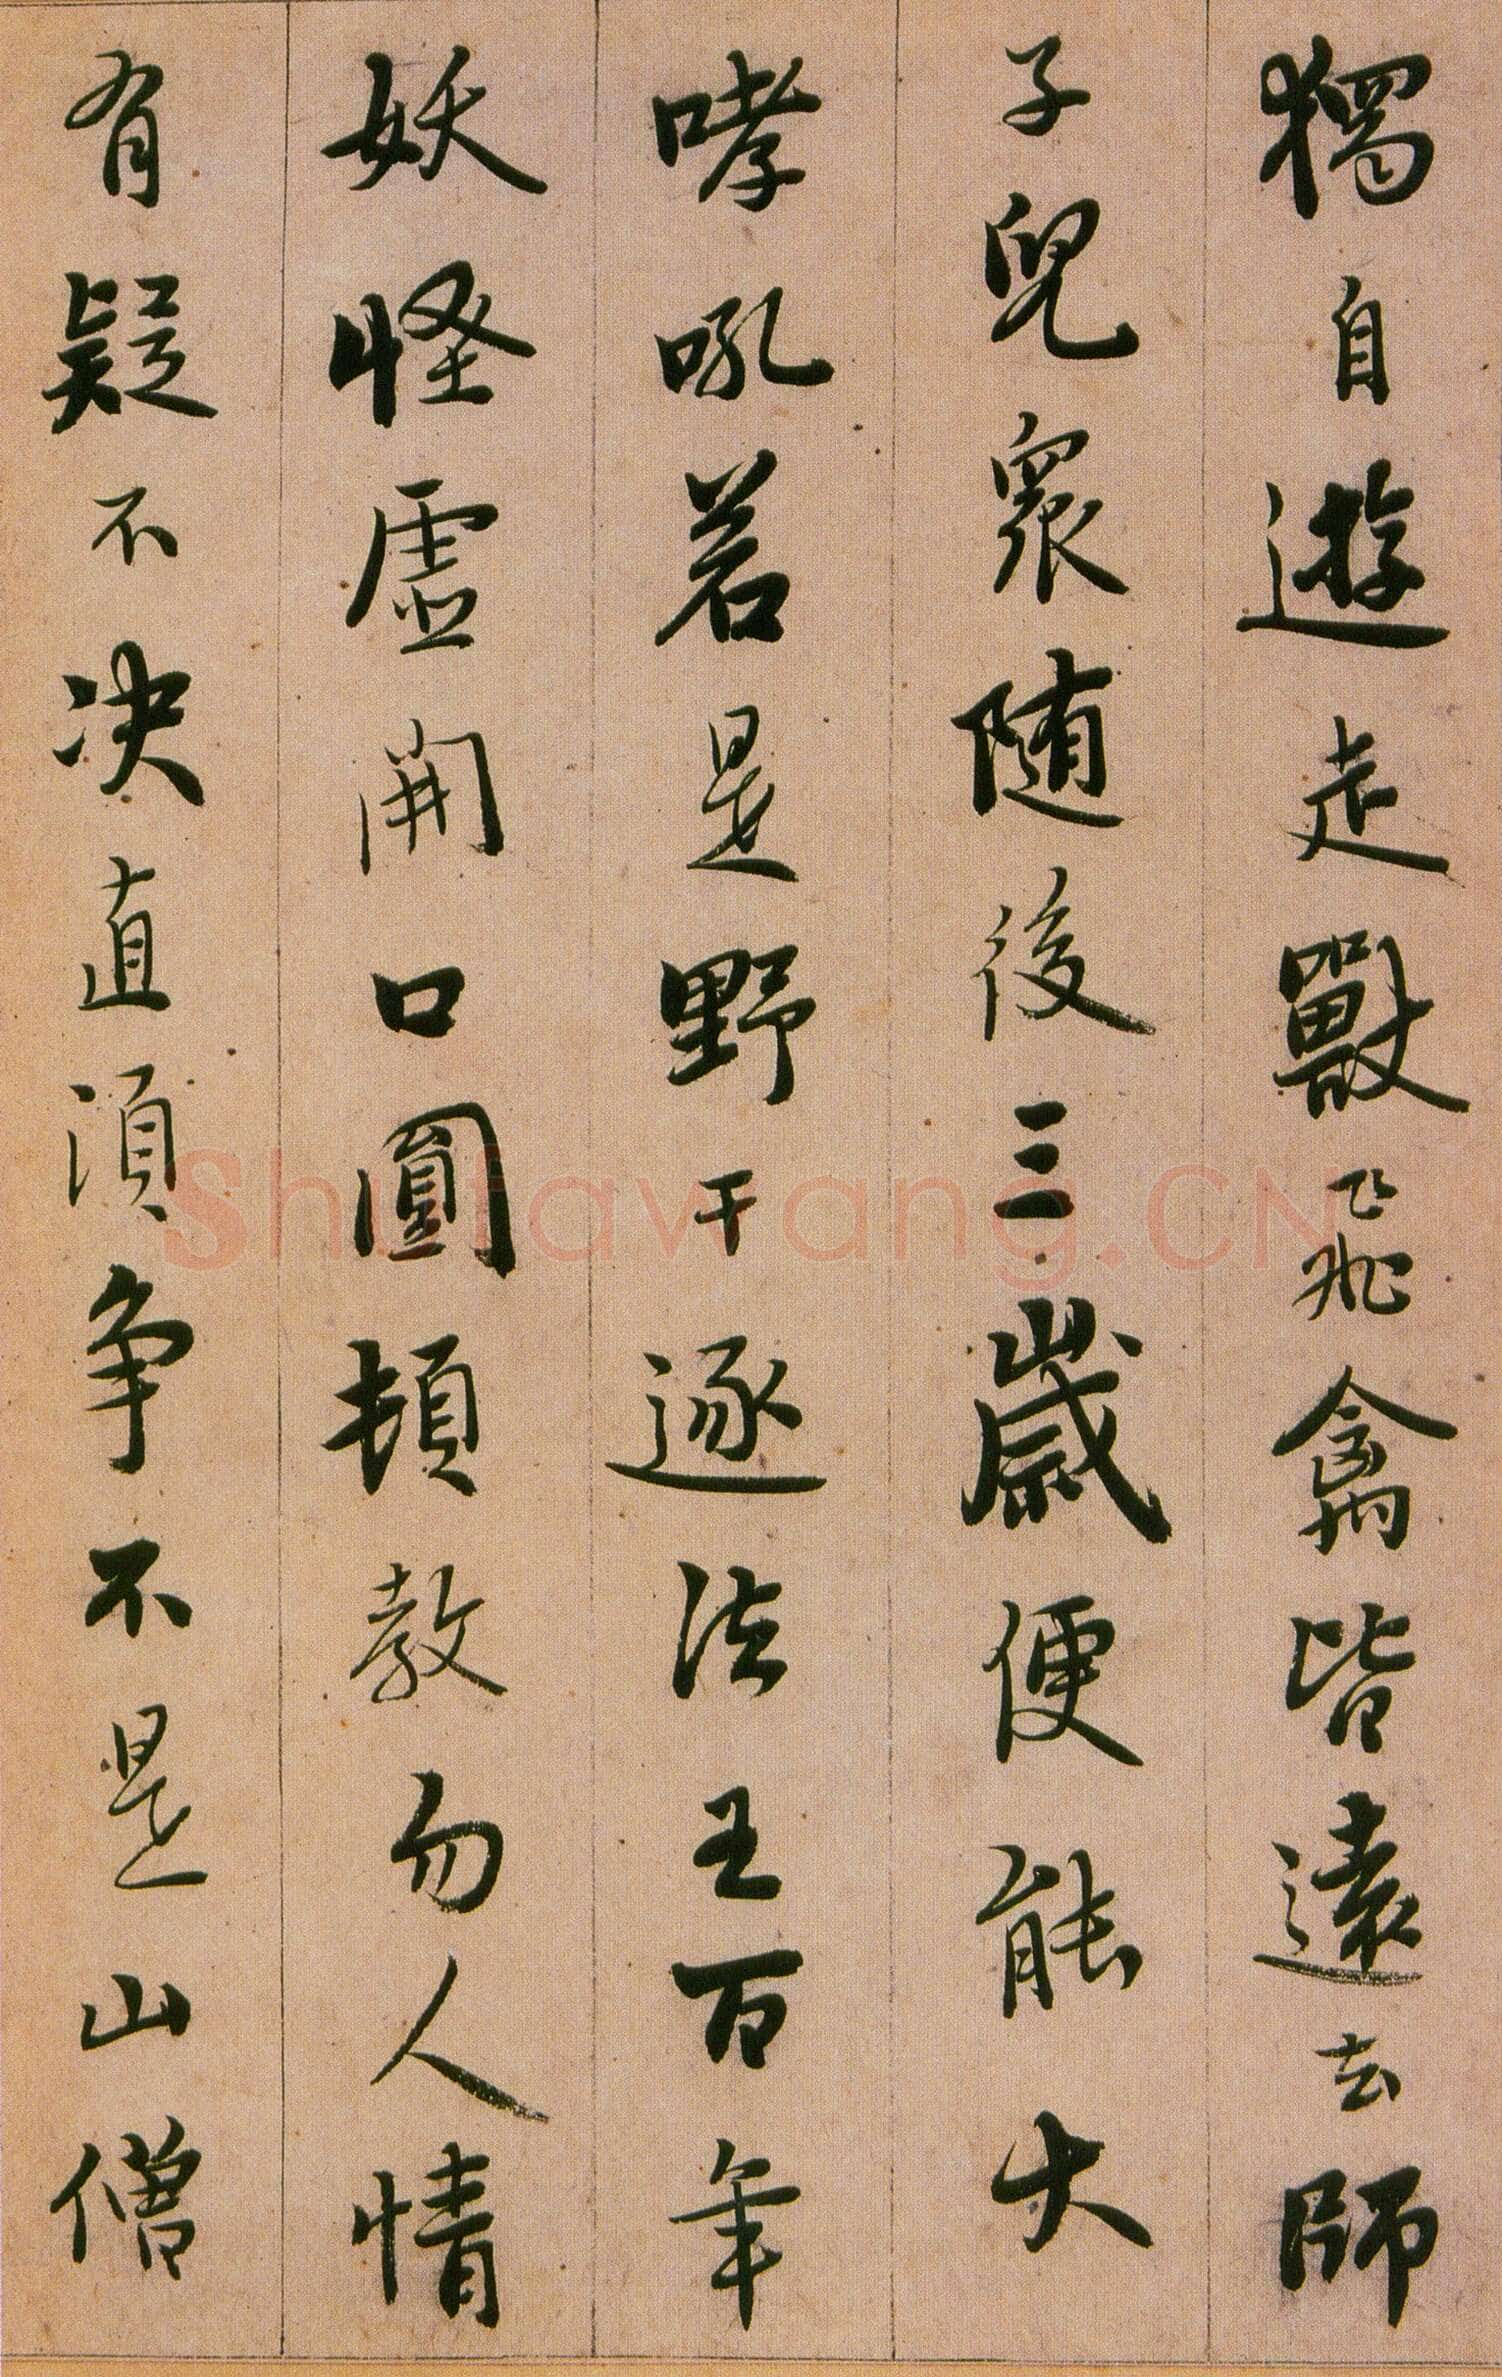 獨自遊走獸飛禽皆遠去師
子兒衆随後三歲便能大
哮吼若是野干逐法王百年
妖怪虛開口圓頓教勿人情
有疑不决直須争不是山僧
Shufawang.CN